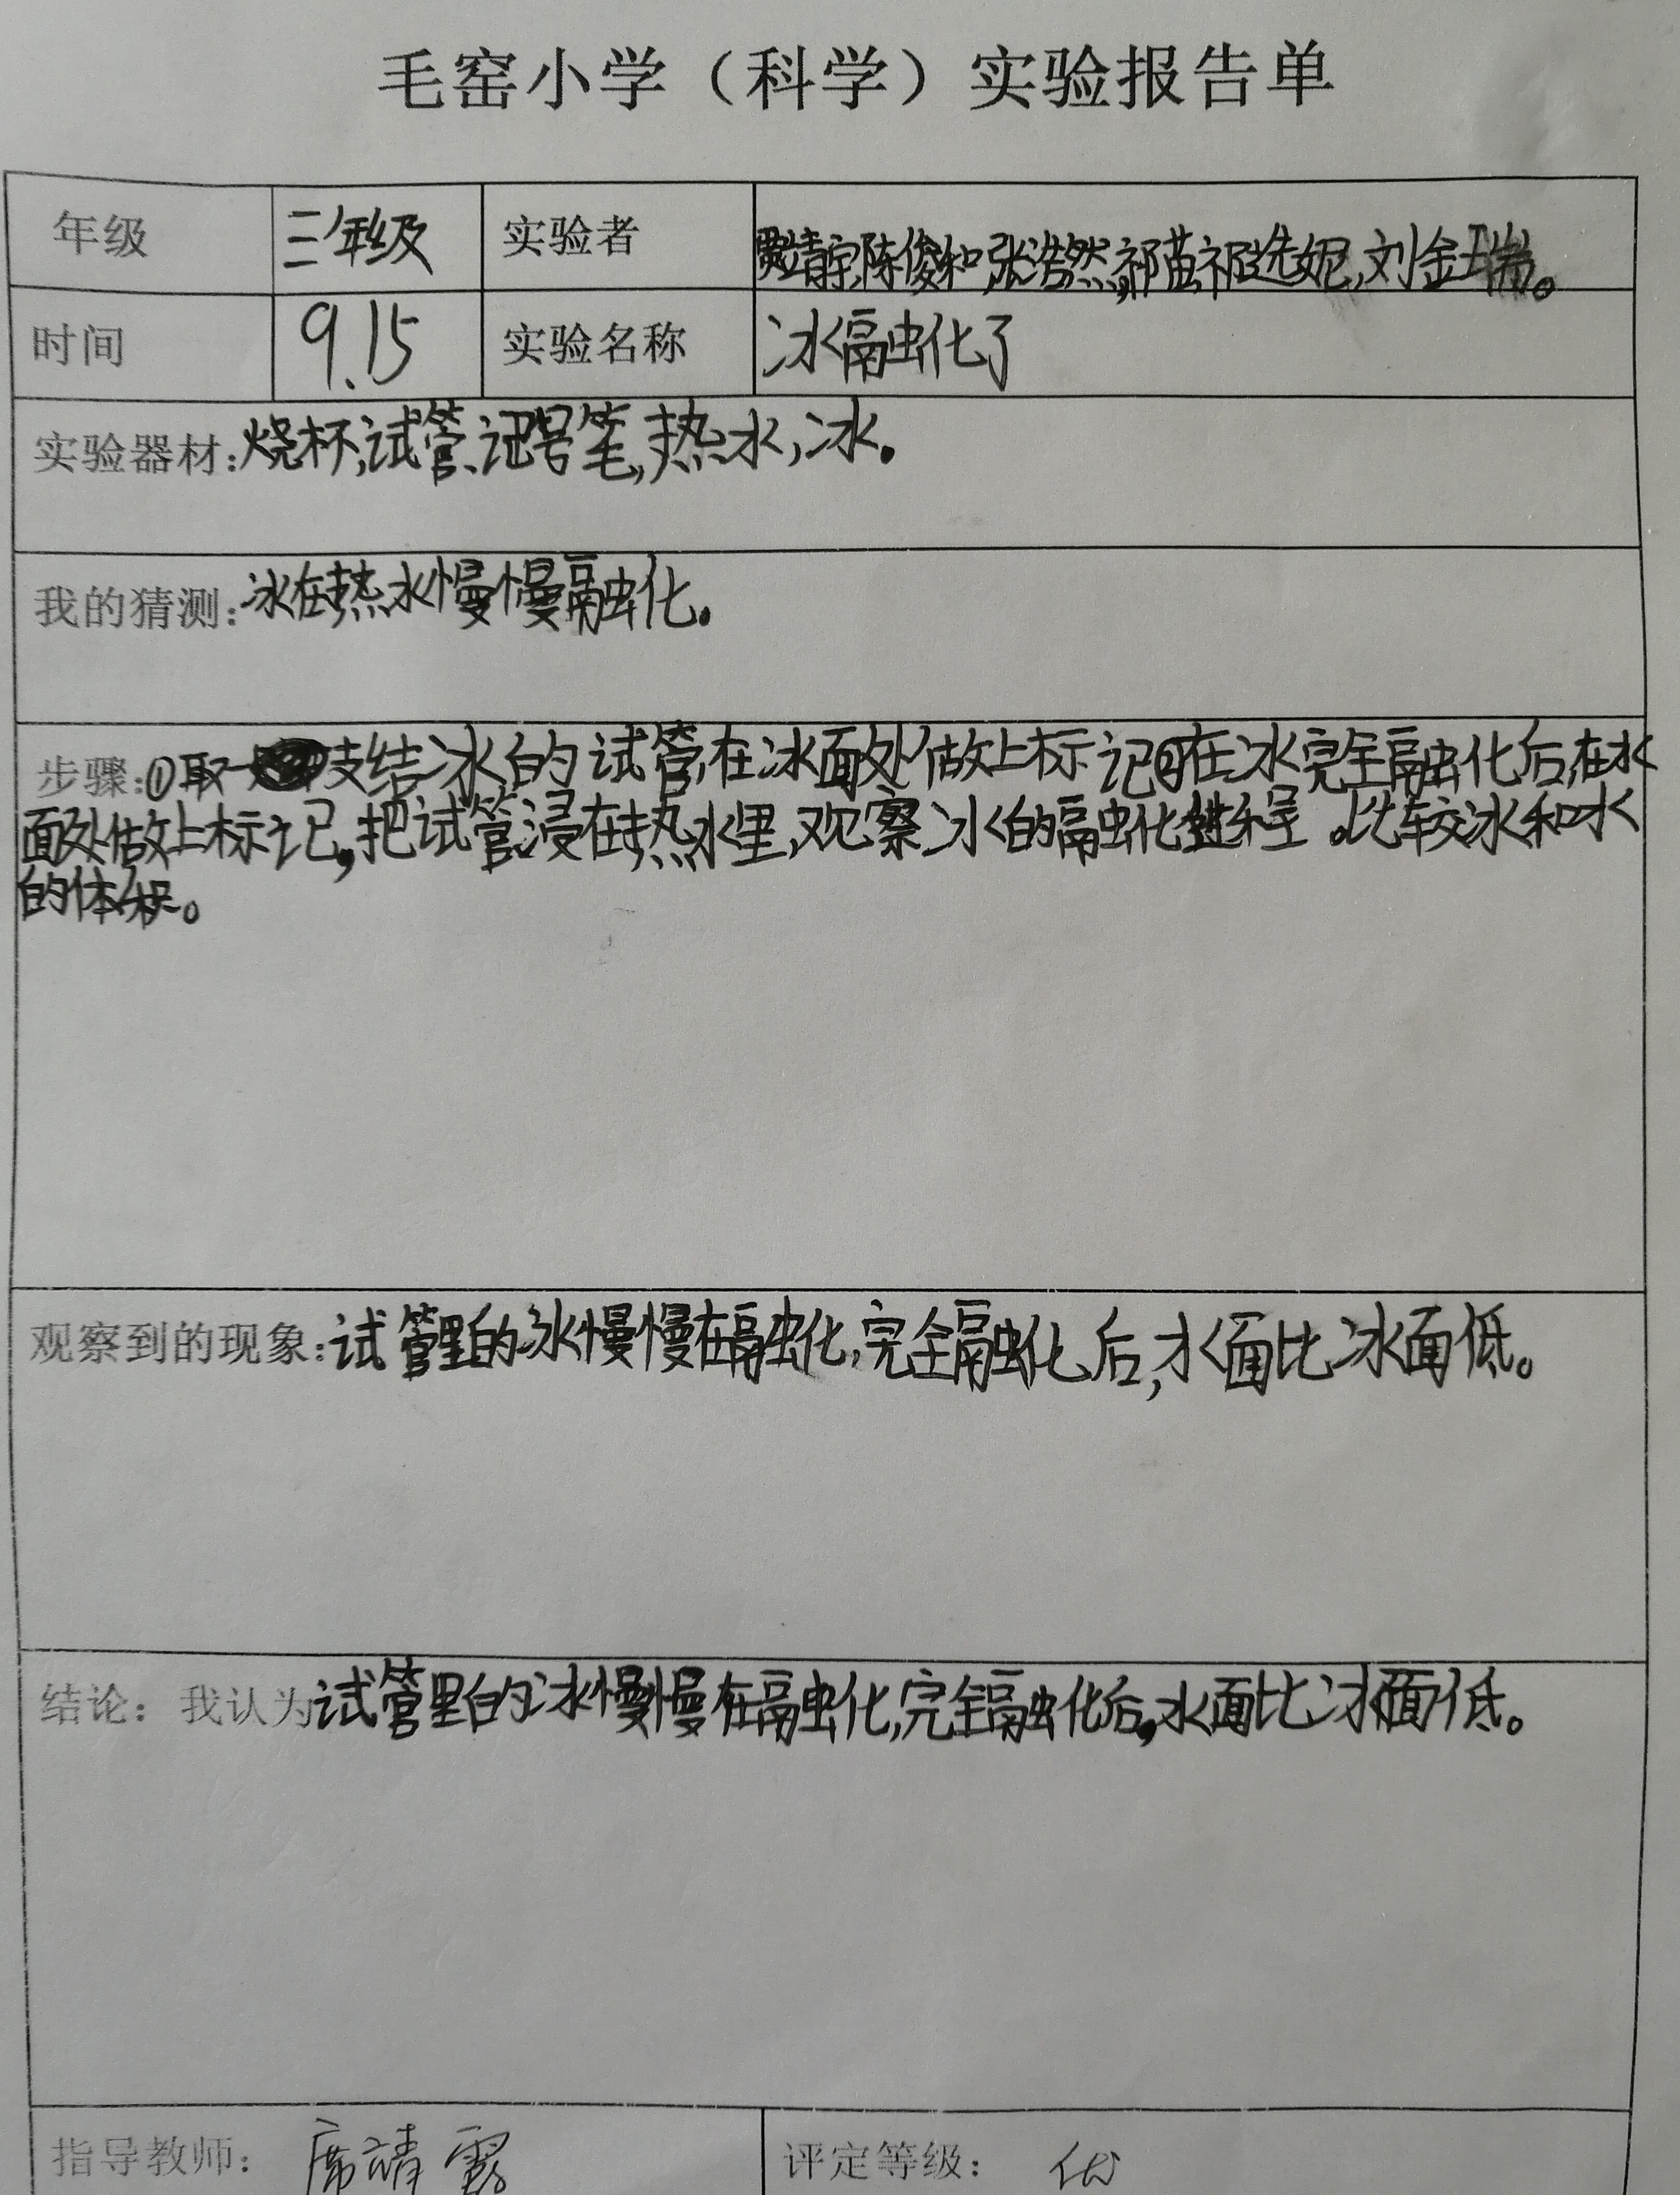 毛窑小学（科学）实验报告单
年级 三年级 实验者 贾靖宇,陈俊和,张浩然,祁苗,祁选妮,刘金瑞。
时间 9.15 实验名称 冰融化了
实验器材:烧杯,试管、记号笔,热水,冰。
我的猜测:冰在热水慢慢融化。
步骤:①取一支结冰的试管,在冰面处做上标记②在冰完全融化后,在水
面处做上标记,把试管浸在热水里,观察冰的融化进程。比较冰和水
的体积。
观察到的现象:试管里的冰慢慢在融化,完全融化后,水面比冰面低。
结论：我认为试管里的冰慢慢在融化,完全融化后,水面比冰面低。
指导教师： 席靖露 评定等级： 优